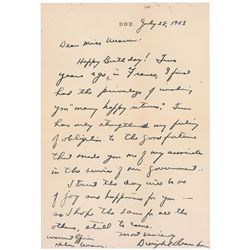 DDE July 28, 1953
Dear Miss Weaver:
Happy Birthday! Two
years ago, in France, I first
had the privilege of wishing
you "many happy returns." Time
has only strengthened my feeling
of obligation to the good fortune
that made you one of my associates
in the service of our government.
I trust the day will be one
of joy and happiness for you —
as I hope the same for all the
others still to come.
Most sincerely
Warrant Officer
Helen Weaver.
Dwight Eisenhower